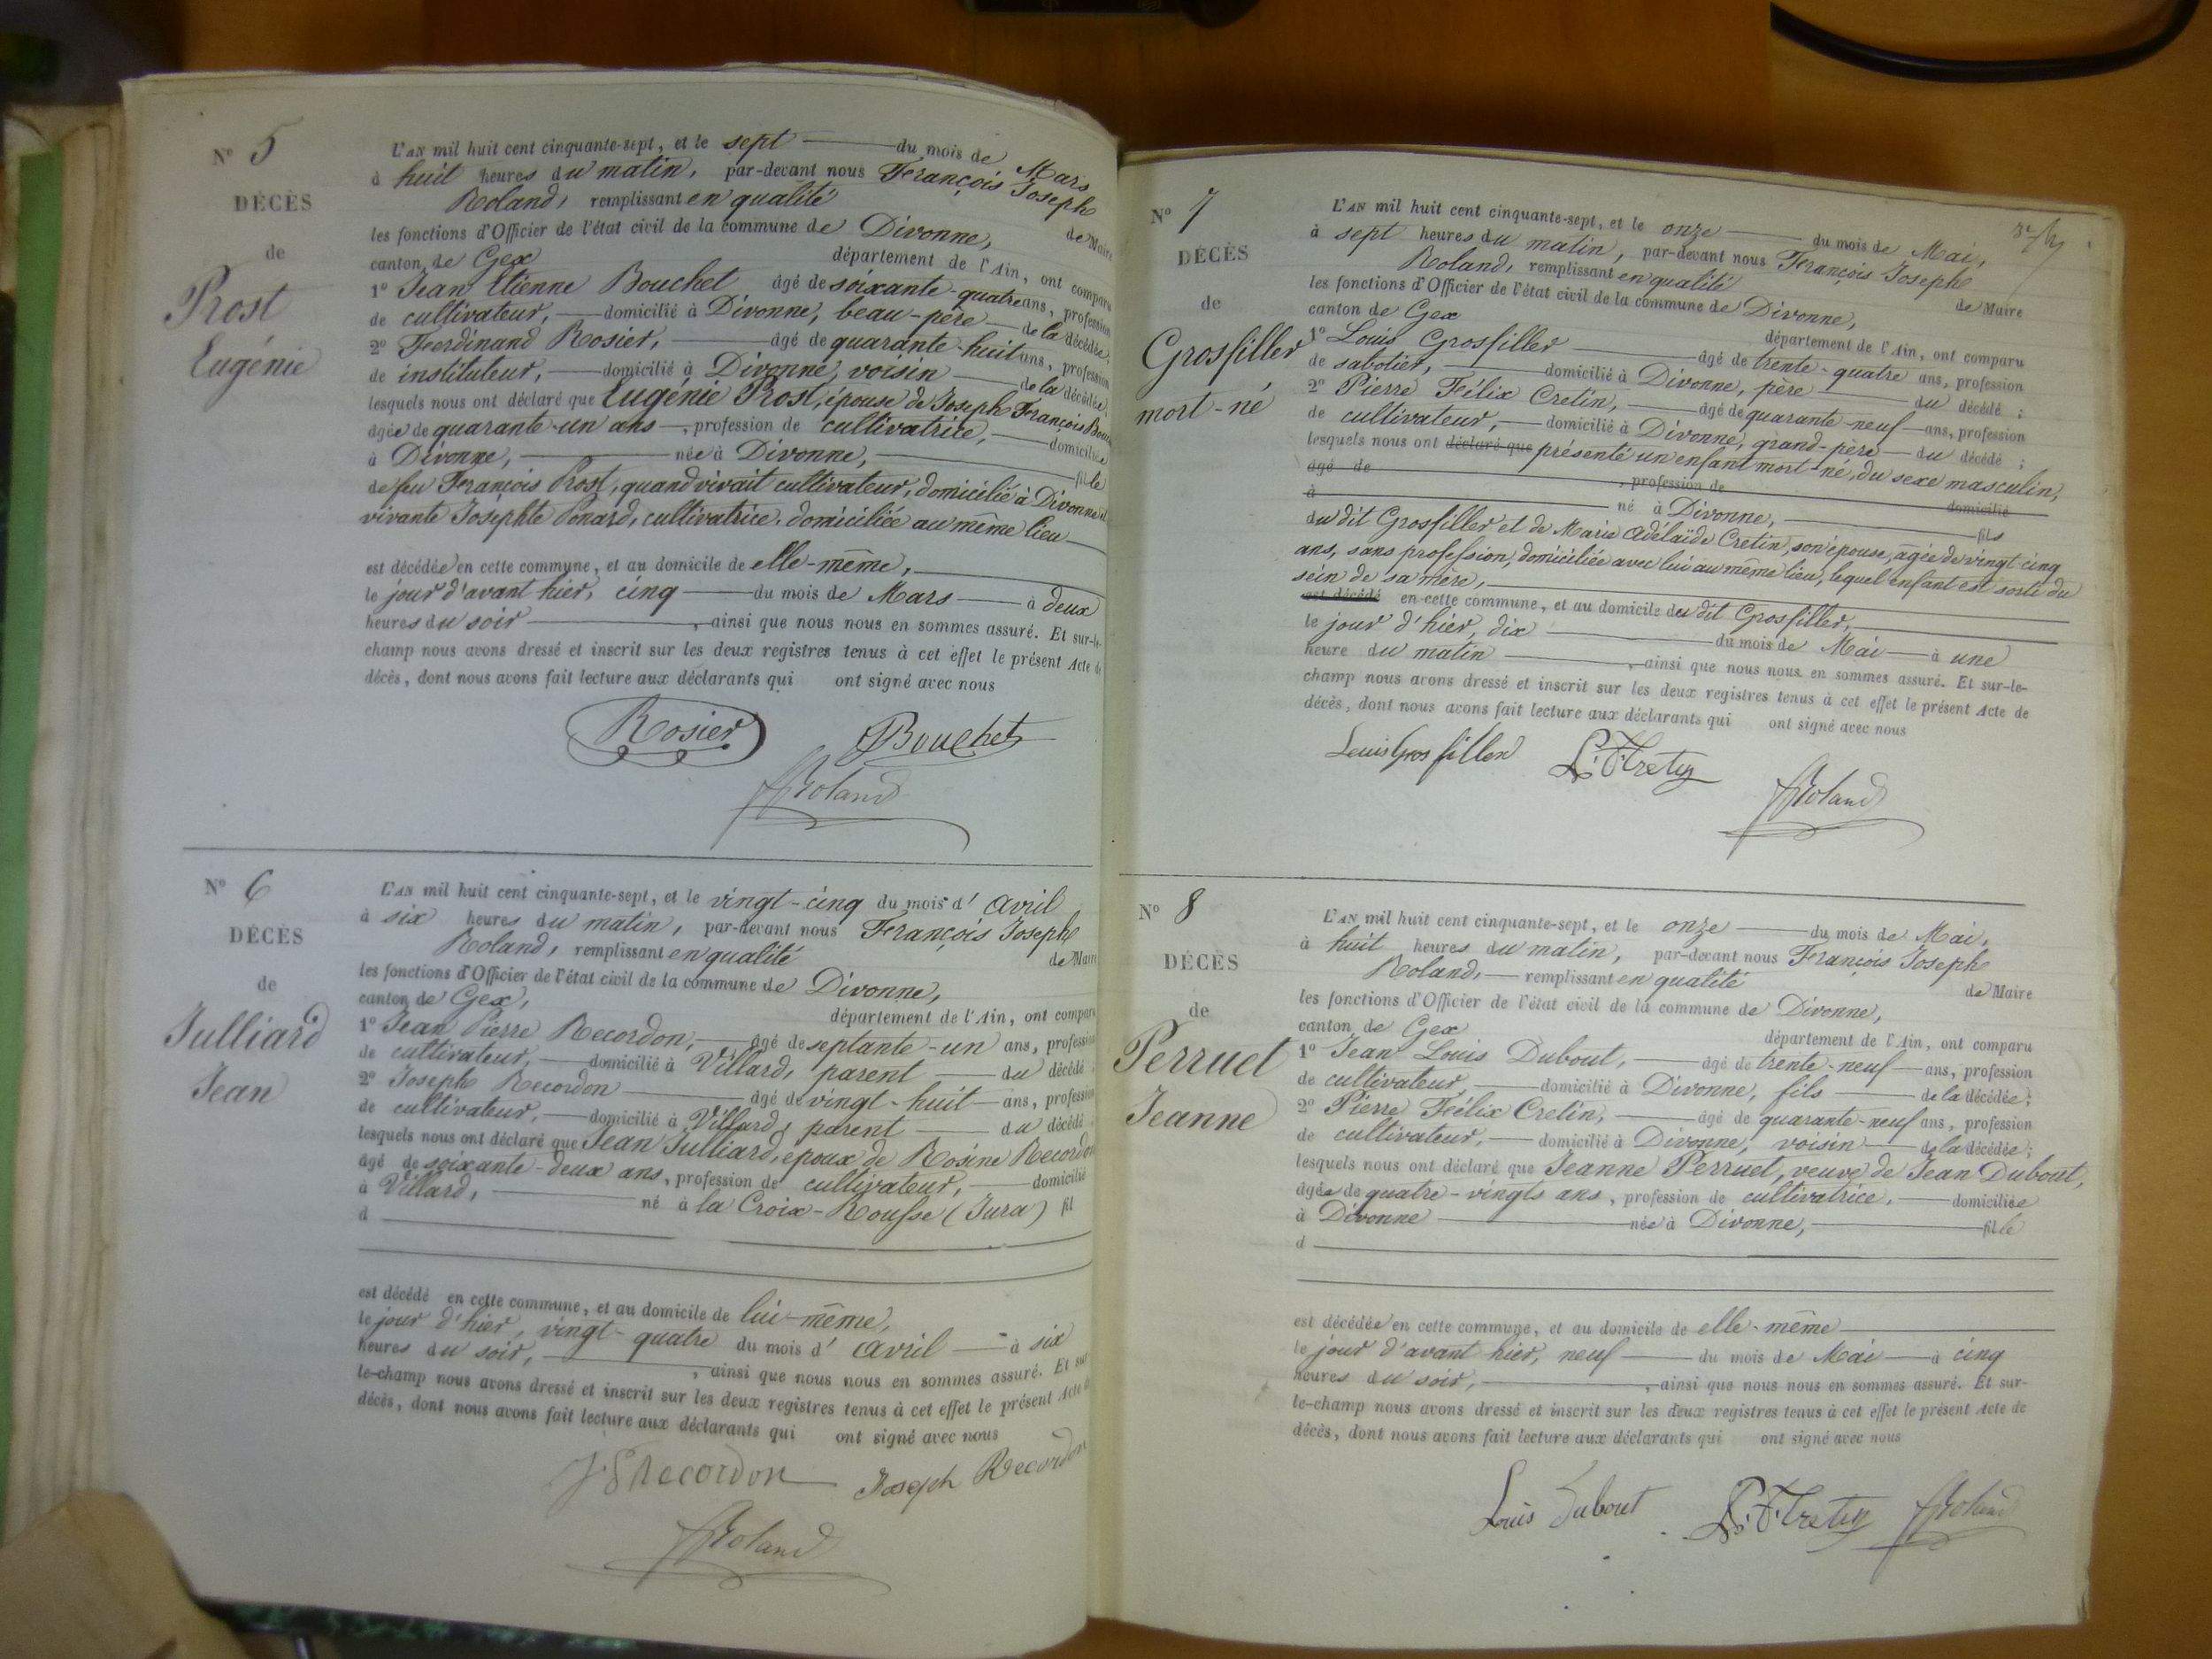 Nº 5
DÉCÈS
de
Prost
Eugénie
L'AN mil huit cent cinquante-sept, et le sept du mois de Mars
à huit heures du matin, par-devant nous François Joseph
Roland, remplissant en qualité de Maire
les fonctions d'Officier de l'état civil de la commune de Divonne,
canton de Gex département de l'Ain, ont comparu
1º Jean Etienne Bouchet âgé de soixante-quatre ans, profession
de cultivateur, domicilié à Divonne, beau-père de la décédée;
2º Ferdinand Rosier, âgé de quarante-huit ans, profession
de instituteur, domicilié à Divonne, voisin de la décédée;
lesquels nous ont déclaré que Eugénie Prost, épouse de Joseph François
âgée de quarante-un ans, profession de cultivatrice, domiciliée
à Divonne, née à Divonne, fille
de feu François Prost, quand vivait cultivateur, domicilié à Divonne et
vivante Josephte Ponard, cultivatrice, domiciliée au même lieu
est décédée en cette commune, et au domicile de elle-même,
le jour d'avant hier, cinq du mois de Mars à deux
heures du soir, ainsi que nous nous en sommes assuré. Et sur-le-
champ nous avons dressé et inscrit sur les deux registres tenus à cet effet le présent Acte de
décès, dont nous avons fait lecture aux déclarants qui ont signé avec nous
Rosier Bouchet
Roland
Nº 6
DÉCÈS
de
Julliard
Jean
L'AN mil huit cent cinquante-sept, et le vingt-cinq du mois d' avril
à six heures du matin, par-devant nous François Joseph
Roland, remplissant en qualité de Maire
les fonctions d'Officier de l'état civil de la commune de Divonne,
canton de Gex, département de l'Ain, ont comparu
1º Jean Pierre Recordon, âgé de septante-un ans, profession
de cultivateur, domicilié à Villard, parent du décédé
2º Joseph Recordon âgé de vingt-huit ans, profession
de cultivateur, domicilié à Villard, parent du décédé
lesquels nous ont déclaré que Jean Julliard, époux de Rosine Recordon
âgé de soixante-deux ans, profession de cultivateur, domicilié
à Villard, né à la Croix-Rousse (Jura) fil
d
est décédé en cette commune, et au domicile de lui-même,
le jour d'hier, vingt-quatre du mois d' avril à six
heures du soir, ainsi que nous nous en sommes assuré. Et sur
le-champ nous avons dressé et inscrit sur les deux registres tenus à cet effet le présent Acte de
décès, dont nous avons fait lecture aux déclarants qui ont signé avec nous
Recordon Joseph Recordon
Roland
Nº 7
DÉCÈS
de
Grosfiller
mort-né
L'AN mil huit cent cinquante-sept, et le onze du mois de Mai,
à sept heures du matin, par-devant nous François Joseph
Roland, remplissant en qualité de Maire
les fonctions d'Officier de l'état civil de la commune de Divonne,
canton de Gex département de l'Ain, ont comparu
1º Louis Grosfiller âgé de trente-quatre ans, profession
de sabotier, domicilié à Divonne, père du décédé;
2º Pierre Félix Cretin, âgé de quarante-neuf ans, profession
de cultivateur, domicilié à Divonne, grand-père du décédé;
lesquels nous ont déclaré que présenté un enfant mort-né, du sexe masculin,
âgé de , profession de domicilié
à né à Divonne, fils
du dit Grosfiller et de Marie Adélaïde Cretin, son épouse, âgée de vingt-cinq
ans, sans profession, domiciliée avec lui au même lieu, lequel enfant est sorti du
sein de sa mère,
est décédé en cette commune, et au domicile du dit Grosfiller,
le jour d'hier, dix du mois de Mai à une
heure du matin, ainsi que nous nous en sommes assuré. Et sur-le-
champ nous avons dressé et inscrit sur les deux registres tenus à cet effet le présent Acte de
décès, dont nous avons fait lecture aux déclarants qui ont signé avec nous
Louis Grosfiller P. F. Cretin
Roland
Nº 8
DÉCÈS
de
Perruet
Jeanne
L'AN mil huit cent cinquante-sept, et le onze du mois de Mai,
à huit heures du matin, par-devant nous François Joseph
Roland, remplissant en qualité de Maire
les fonctions d'Officier de l'état civil de la commune de Divonne,
canton de Gex département de l'Ain, ont comparu
1º Jean Louis Dubout, âgé de trente-neuf ans, profession
de cultivateur, domicilié à Divonne, fils de la décédée;
2º Pierre Félix Cretin, âgé de quarante-neuf ans, profession
de cultivateur, domicilié à Divonne, voisin de la décédée;
lesquels nous ont déclaré que Jeanne Perruet, veuve de Jean Dubout,
âgée de quatre-vingts ans, profession de cultivatrice, domiciliée
à Divonne née à Divonne, fille
d
est décédée en cette commune, et au domicile de elle-même
le jour d'avant hier, neuf du mois de Mai à cinq
heures du soir, ainsi que nous nous en sommes assuré. Et sur-
le-champ nous avons dressé et inscrit sur les deux registres tenus à cet effet le présent Acte de
décès, dont nous avons fait lecture aux déclarants qui ont signé avec nous
Louis Dubout P. F. Cretin Roland